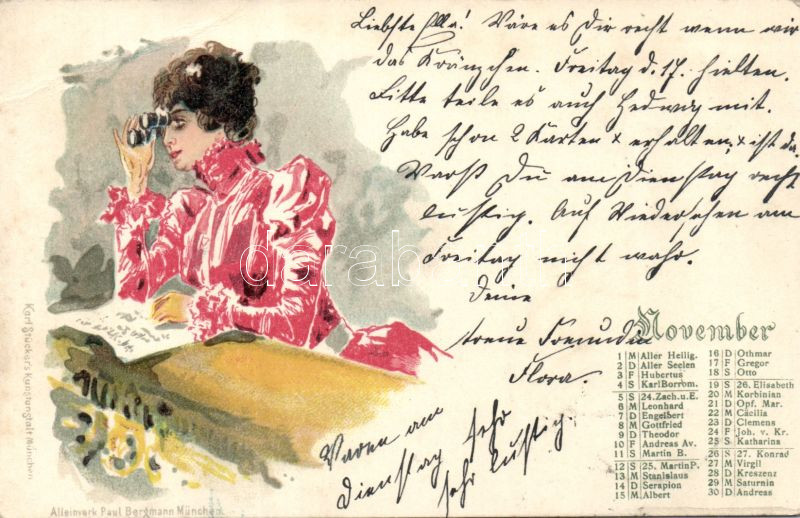 Liebste Ella! Wäre es Dir recht wenn wir
das Kränzchen. Freitag d. 17. hielten.
Bitte teile es auch Hedwig mit.
Habe schon 2 Karten x erhalten, x ist da.
Warst Du am Dienstag recht
lustig. Auf Wiedersehen am
Freitag nicht wahr.
Deine
treue Freundin
Flora.
Waren am
Dienstag sehr
sehr lustig.
November
1 M Aller Heilig.
2 D Aller Seelen
3 F Hubertus
4 S Karl Borrom.
5 S 24. Zach. u. E.
6 M Leonhard
7 D Engelbert
8 M Gottfried
9 D Theodor
10 F Andreas Av.
11 S Martin B.
12 S 25. Martin P.
13 M Stanislaus
14 D Serapion
15 M Albert
16 D Othmar
17 F Gregor
18 S Otto
19 S 26. Elisabeth
20 M Korbinian
21 D Opf. Mar.
22 M Cäcilia
23 D Clemens
24 F Joh. v. Kr.
25 S Katharina
26 S 27. Konrad
27 M Virgil
28 D Kreszenz
29 M Saturnin
30 D Andreas
Karl Stücker's Kunstanstalt München.
Alleinverk Paul Bergmann München.